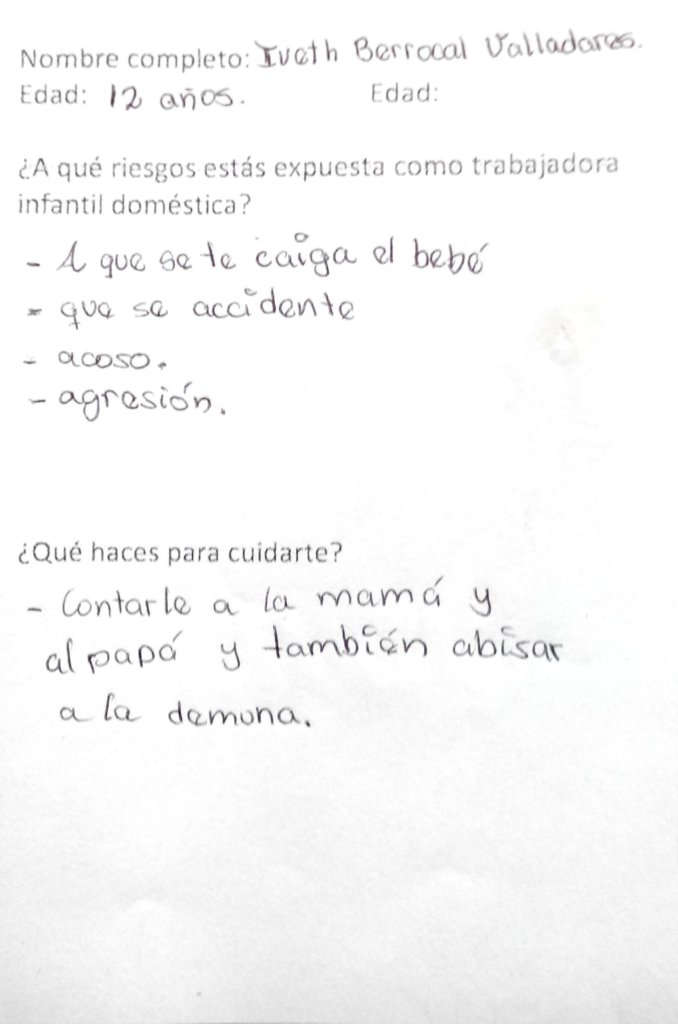 Nombre completo: Iveth Berrocal Valladares.
Edad: 12 años. Edad:
¿A qué riesgos estás expuesta como trabajadora
infantil doméstica?
- A que se te caiga el bebé
- que se accidente
- acoso.
- agresión.
¿Qué haces para cuidarte?
- Contarle a la mamá y
al papá y también abisar
a la demuna.